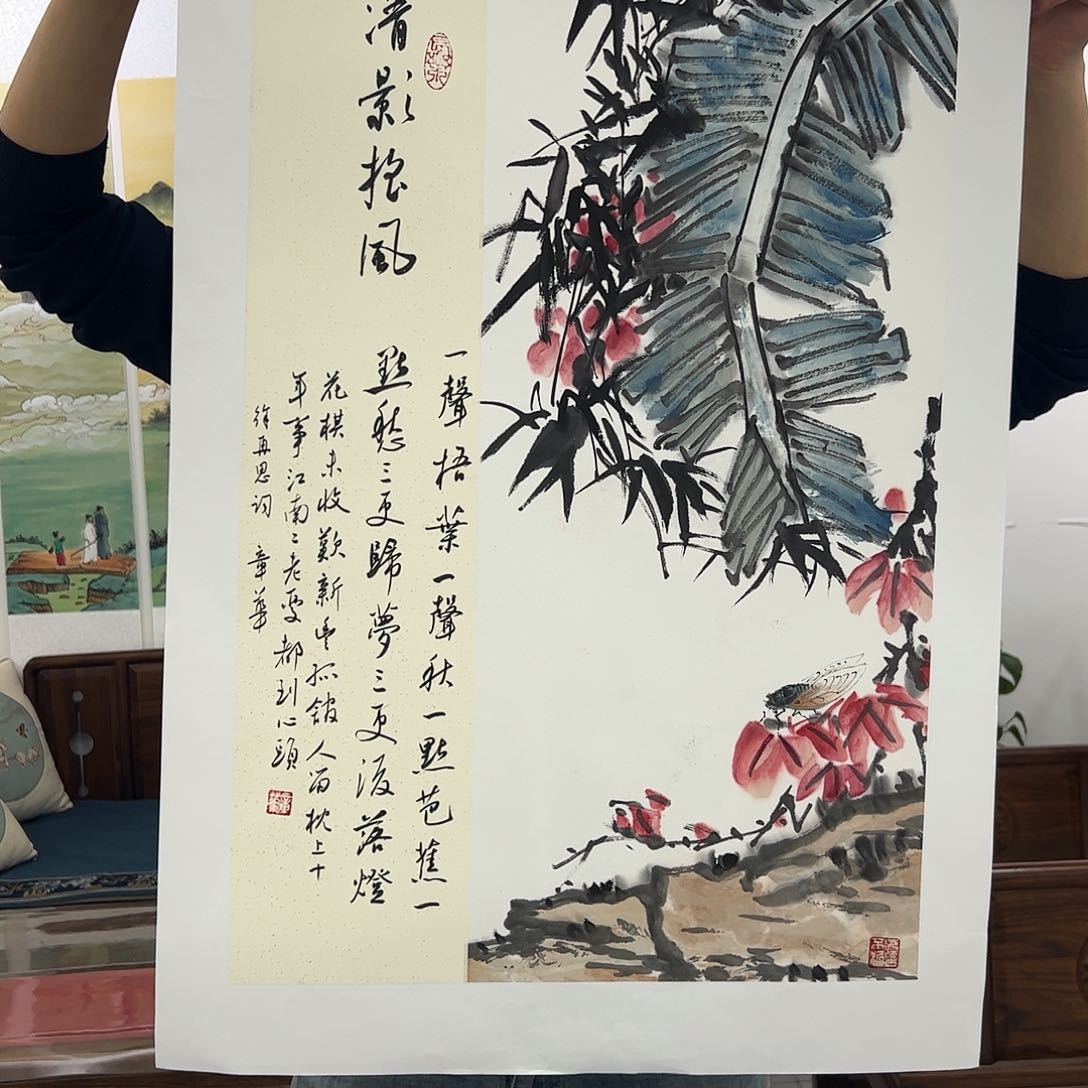 清影搖風
一聲梧葉一聲秋一點芭蕉一
點愁三更歸夢三更後落燈
花棋未收歎新豐孤館人留枕上十
年事江南二老憂都到心頭
徐再思詞 章華